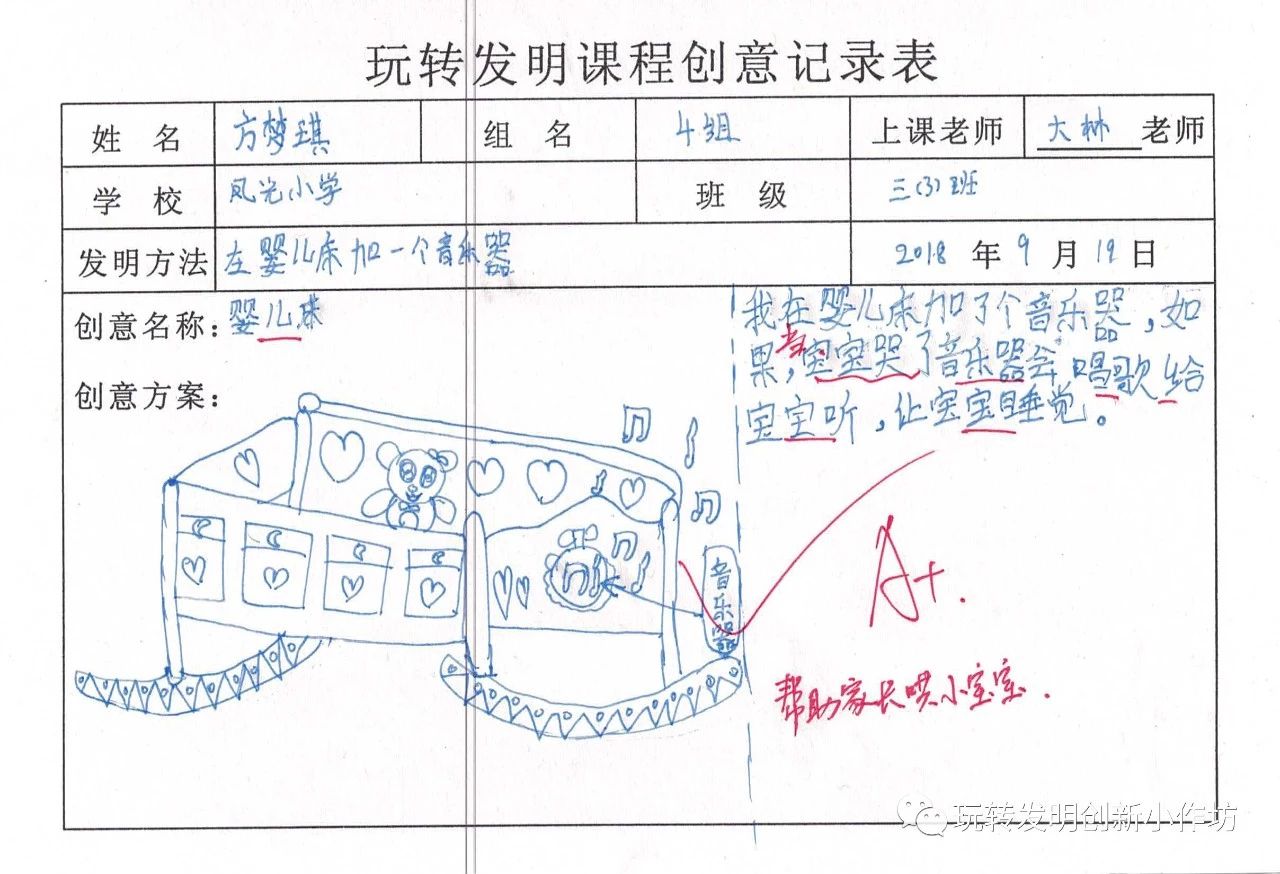 玩转发明课程创意记录表
姓 名 方梦琪 组 名 4组 上课老师 大林 老师
学 校 凤光小学 班 级 三(3)班
发明方法 在婴儿床加一个音乐器 2018 年 9 月 19 日
创意名称：婴儿床
创意方案：
我在婴儿床加了个音乐器，如
果，当宝宝哭了音乐器会唱歌给
宝宝听，让宝宝睡觉。
音乐器
A+.
帮助家长哄小宝宝.
玩转发明创新小作坊